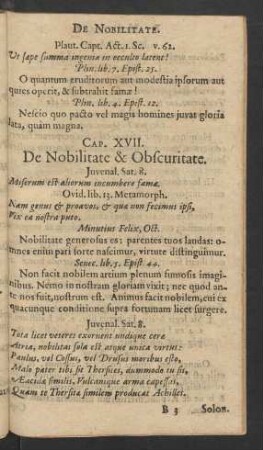 DE NOBILITATE.
Plaut. Capt. Act. 1. Sc. v. 62.
Ut sæpe summa ingenia in occulto latent!
Plin. lib. 7. Epist. 25.
O quantum eruditorum aut modestia ipsorum aut
quies operit, & subtrahit famæ!
Plin. lib. 4. Epist. 12.
Nescio quo pacto vel magis homines juvat gloria
lata, quàm magna.
CAP. XVII.
De Nobilitate & Obscuritate.
Juvenal. Sat. 8.
Miserum est aliorum incumbere famæ.
Ovid. lib. 13. Metamorph.
Nam genus & proavos, & quæ non fecimus ipsi,
Vix ea nostra puto.
Minutius Felix, Oct.
Nobilitate generosus es: parentes tuos laudas: o-
mnes enim pari sorte nascimur, virtute distinguimur.
Senec. lib. 5. Epist. 44.
Non facit nobilem atrium plenum fumosis imagi-
nibus. Nemo in nostram gloriam vixit; nec quod an-
te nos fuit, nostrum est. Animus facit nobilem, cui ex
quacunque conditione supra fortunam licet surgere.
Juvenal. Sat. 8.
Tota licet veteres exornent undique ceræ
Atria, nobilitas sola est atque unica virtus:
Paulus, vel Cossus, vel Drusus moribus esto,
Malo pater tibi sit Thersites, dummodo tu sis,
Æacidæ similis, Vulcaniaque arma capessas,
Quàm te Thersitæ similem producat Achilles.
B 3 Solon.